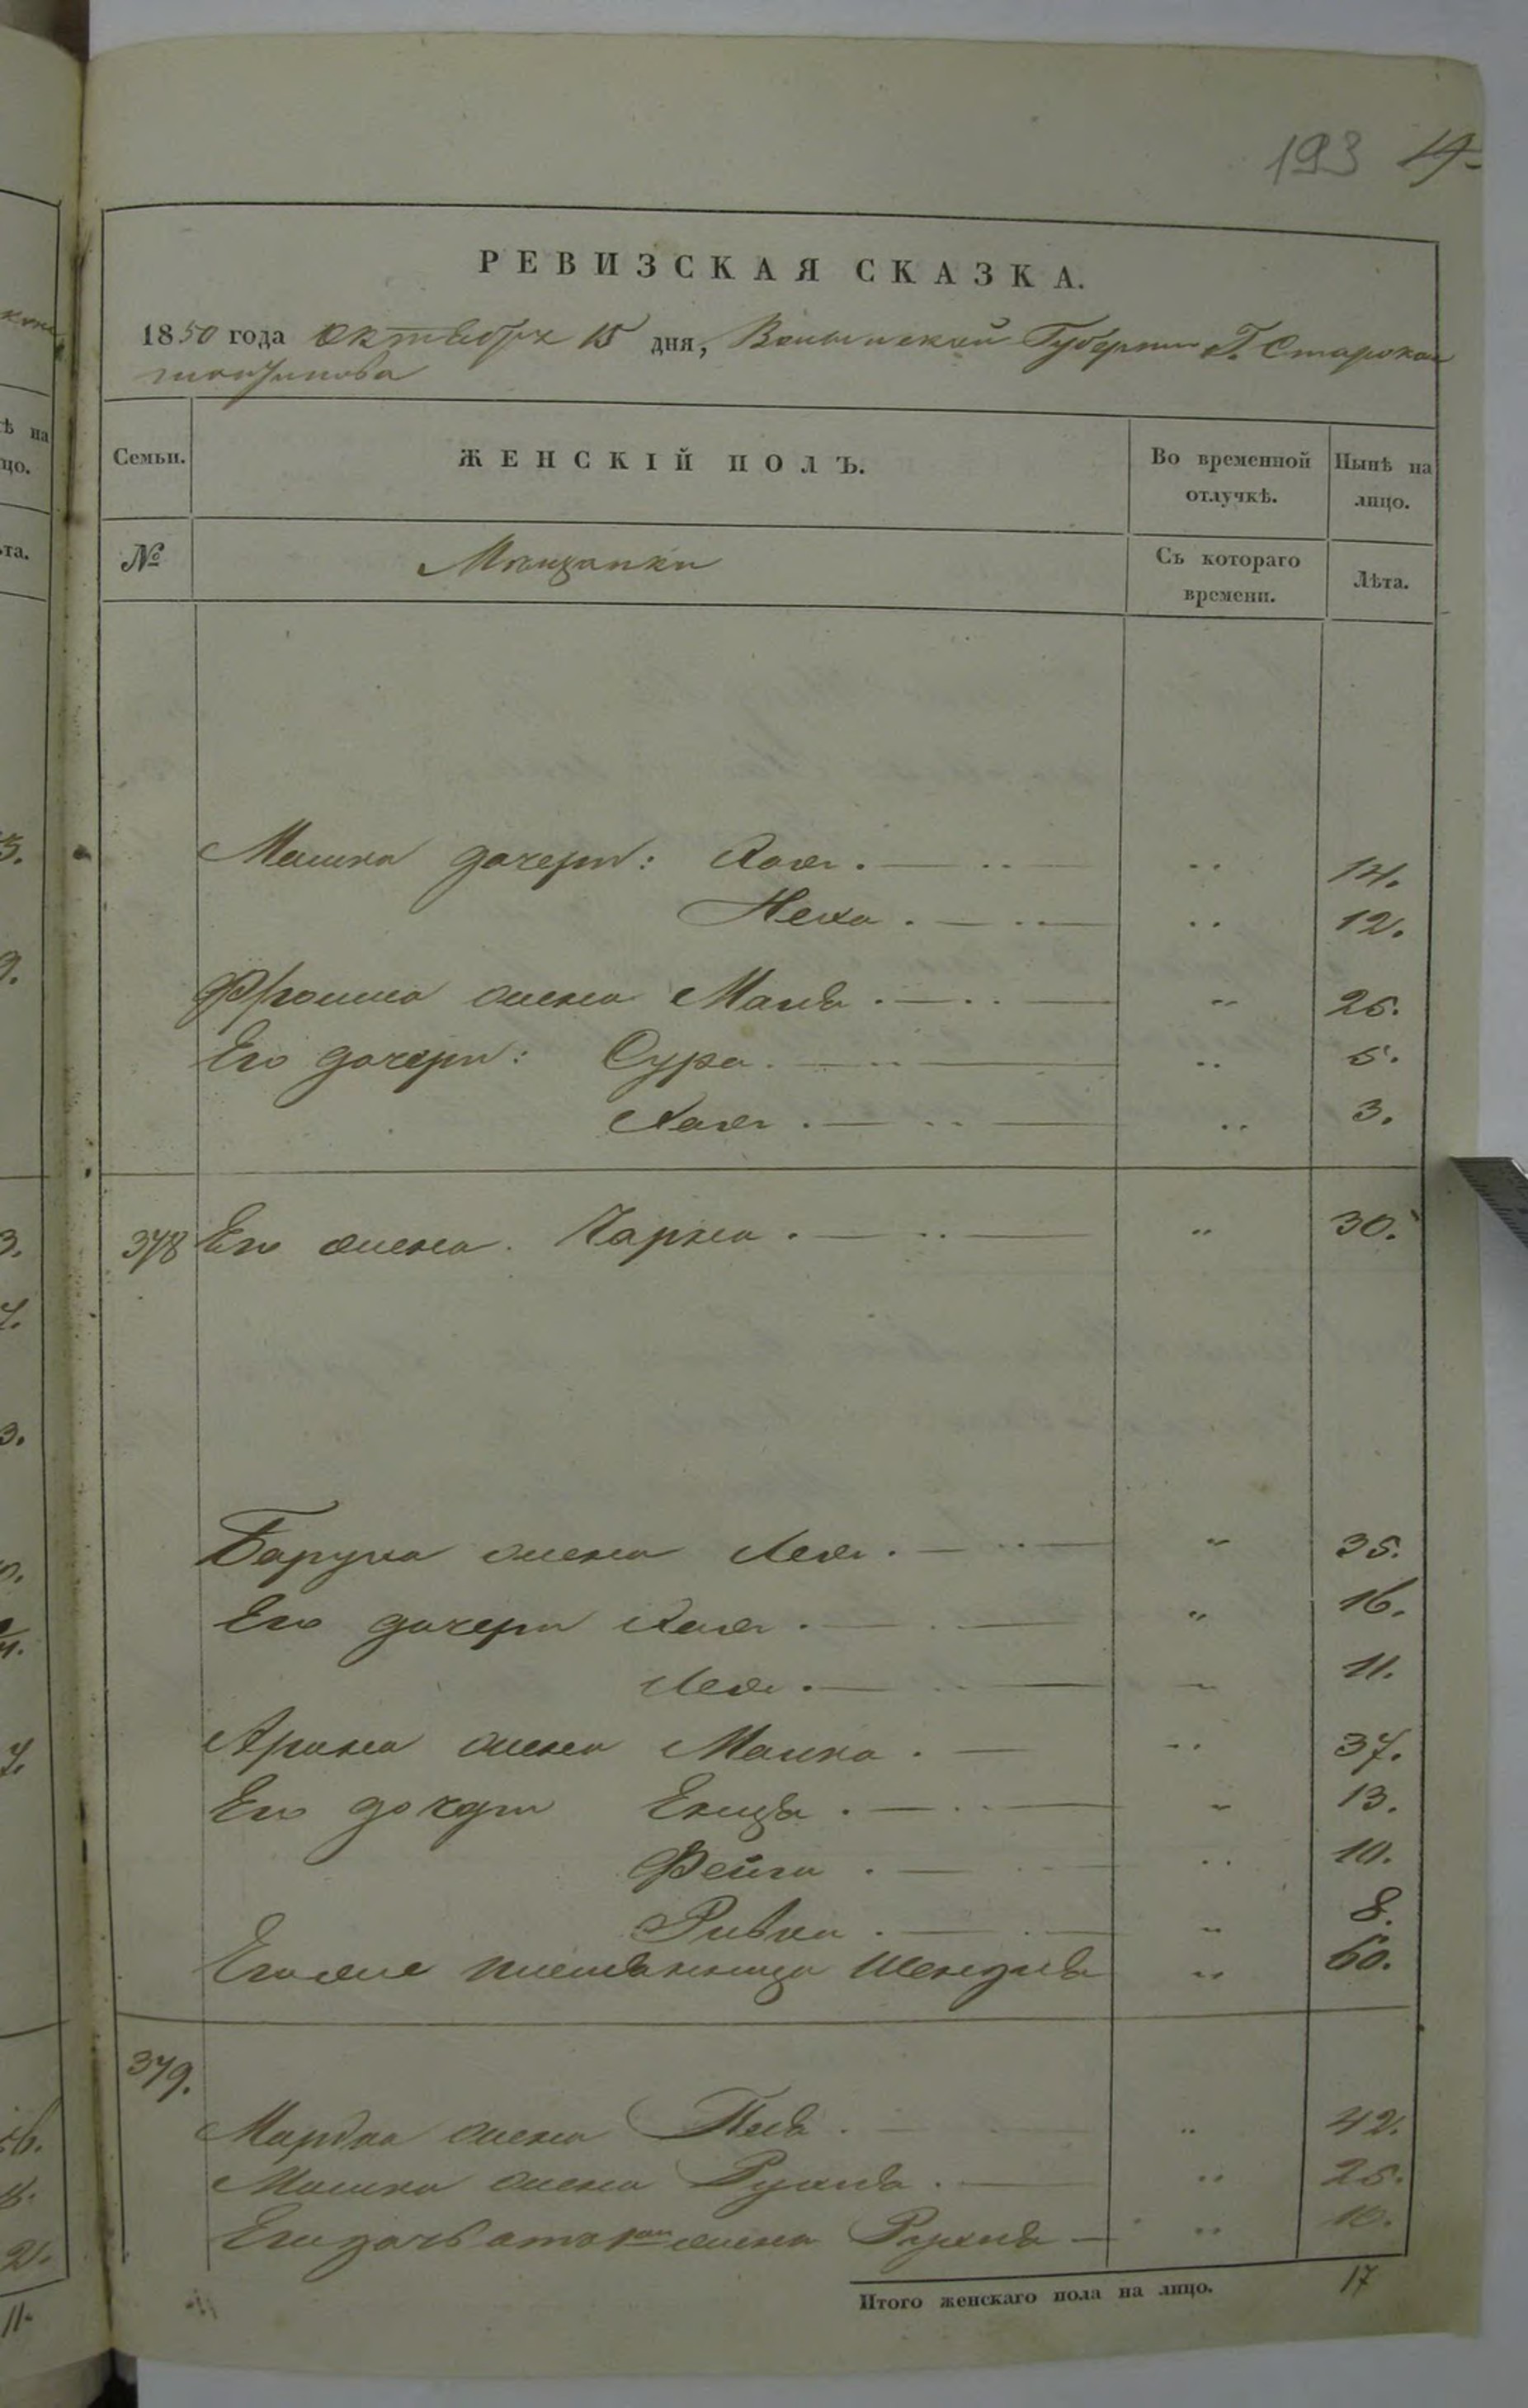 193 19
РЕВИЗСКАЯ СКАЗКА.
1850 года Октября 15 дня, Волынской Губернии Г. Старокон
стантинова
Семьи. ЖЕНСКІЙ ПОЛЪ. Во временной отлучкѣ. Нынѣ на лицо.
№ Мѣщанки Съ котораго времени. Лѣта.
Мошка дочери: Хая. 14.
Неха. 12.
Фроима жена Маля. 25.
Его дочери: Сура. 5.
Хая. 3.
378 Его жена. Чарна. 30.
Боруха жена Лея. 35.
Его дочери Хая. 16.
Лея. 11.
Арона жена Малка. 37.
Его дочери Ента. 13.
Фейга. 10.
Ривка. 8.
Егоже племянница Шендля 60.
379.
Мордка жена Перля. 42.
Мошка жена Рухля. 25.
Его дочь отъ 1ой жены Рухля 10.
Итого женскаго пола на лицо. 17